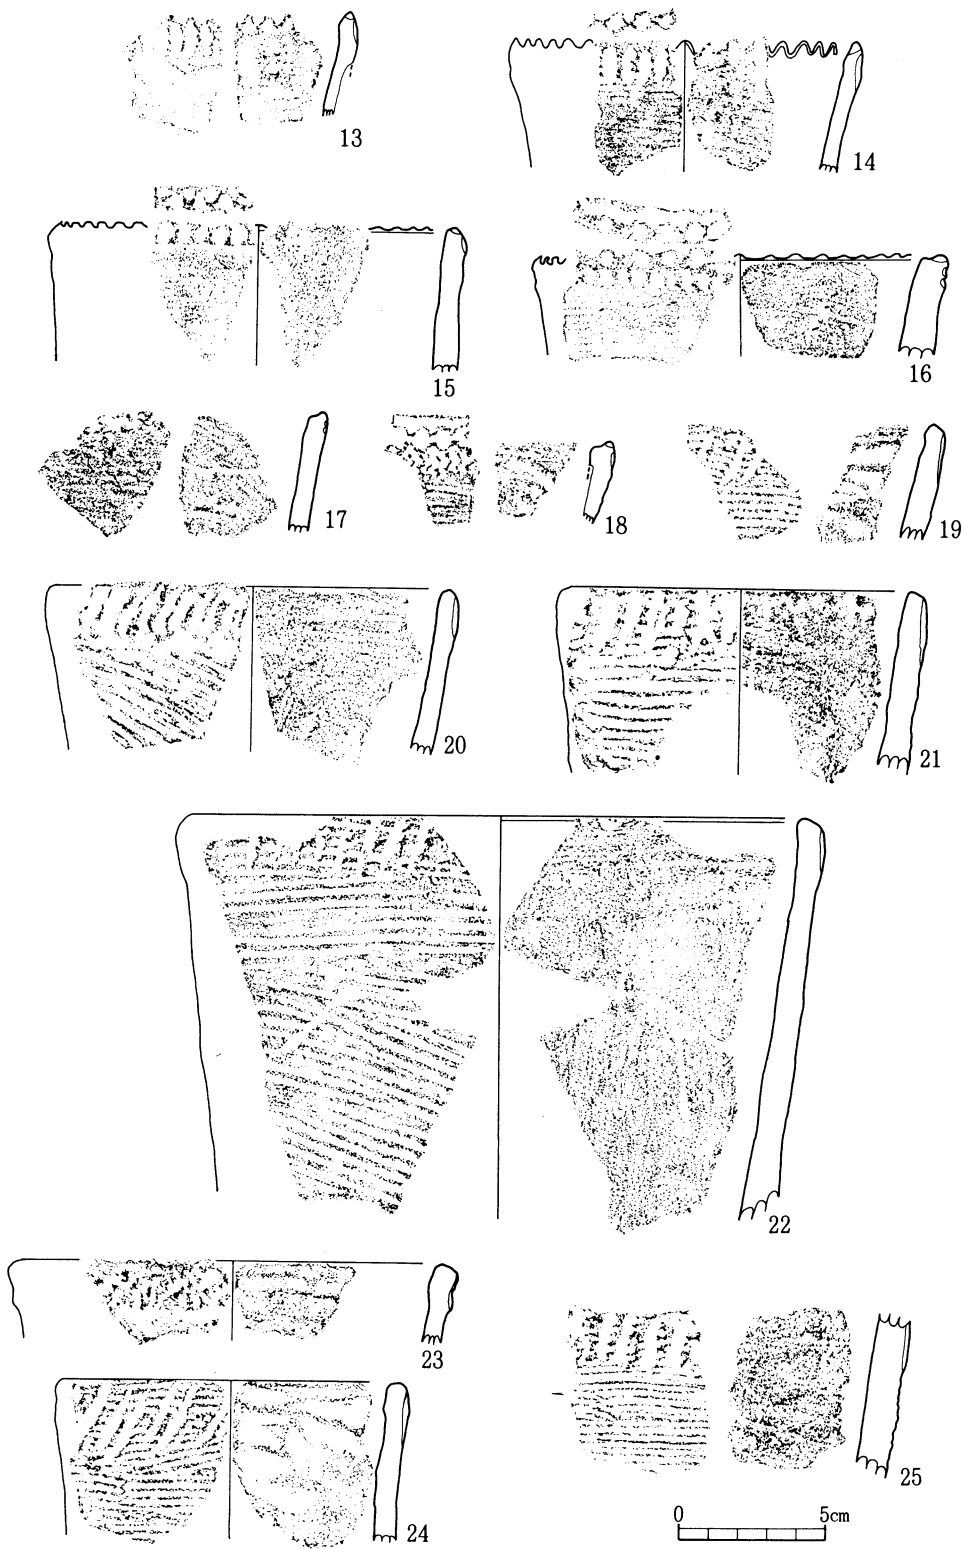 13
14
15
16
17
18
19
20
21
22
23
24
25
0 5cm